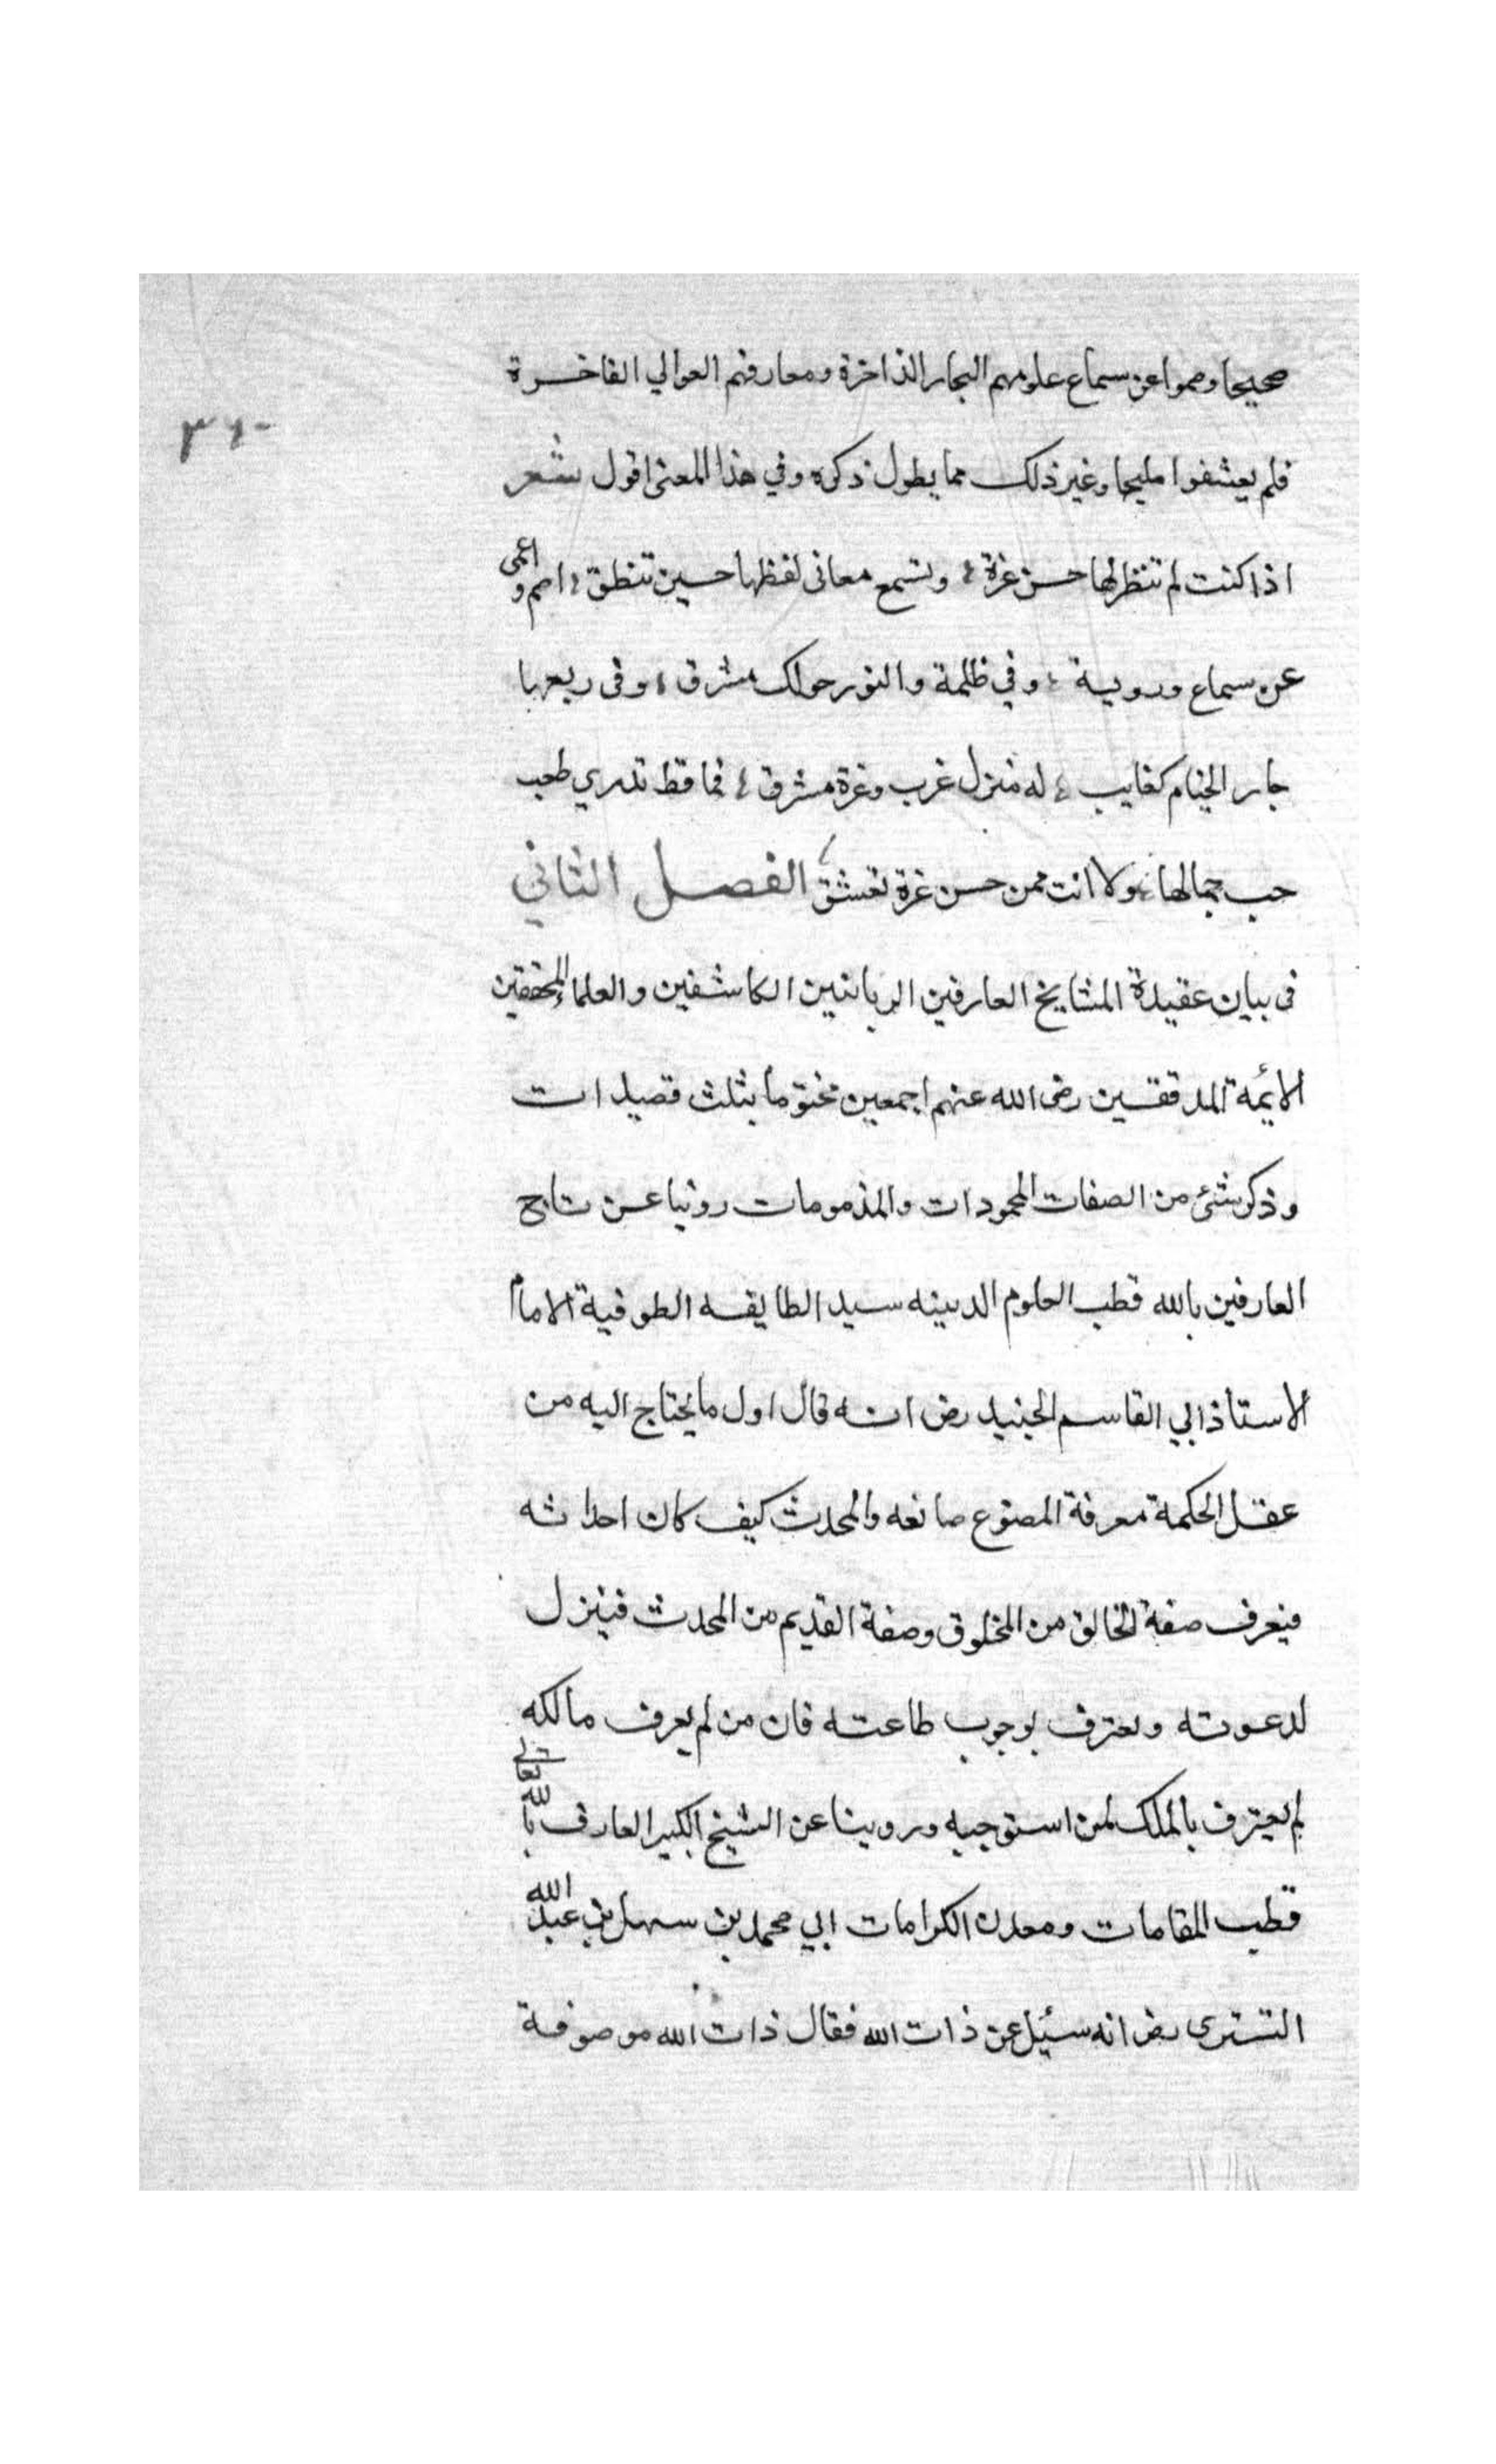 صحيحا وصموا عن سماع علومهم البحار الذاخرة ومعارفهم العوالي الفاخرة
فلم يعشقوا مليحا وغير ذلك مما يطول ذكره وفي هذا المعنى اقول شعر
اذا كنت لم تنظر لها حسن غرة وتسمع معانى لفظها حسين تنطق اصم و اعمى
عن سماع وروية وفي ظلمة والنور حولك مشرق وفى ربعها
جار الخيام كغايب له منزل غرب وغرة مشرق فما قط تدري طعب
حب جمالها ولا انت ممن حسن غرة تعشق الفصل الثاني
فى بيان عقيدة المشايخ العارفين الربانيين الكاشفين والعلما المحققين
الائمة المدققين رضى الله عنهم اجمعين مختوما بثلث قصيدات
وذكر شئ من الصفات المحمودات والمذمومات روينا عن تاج
العارفين بالله قطب العلوم الدينه سيد الطايفه الطوفية الامام
الاستاذ ابي القاسم الجنيد رض انه قال اول ما يحتاج اليه من
عقل الحكمة معرفة المصنوع صانعه والمحدث كيف كان احداثه
فيعرف صفة الخالق من المخلوق وصفة القديم من المحدث فينزل
لدعوته ويعترف بوجوب طاعته فان من لم يعرف مالكه
لم يعترف بالملك لمن استوجبه وروينا عن الشيخ الكبير العارف بالله تعالى
قطب المقامات ومعدن الكرامات ابي محمد بن سهل بن عبد الله
التسترى رض انه سئيل عن ذات الله فقال ذات الله موصوفة